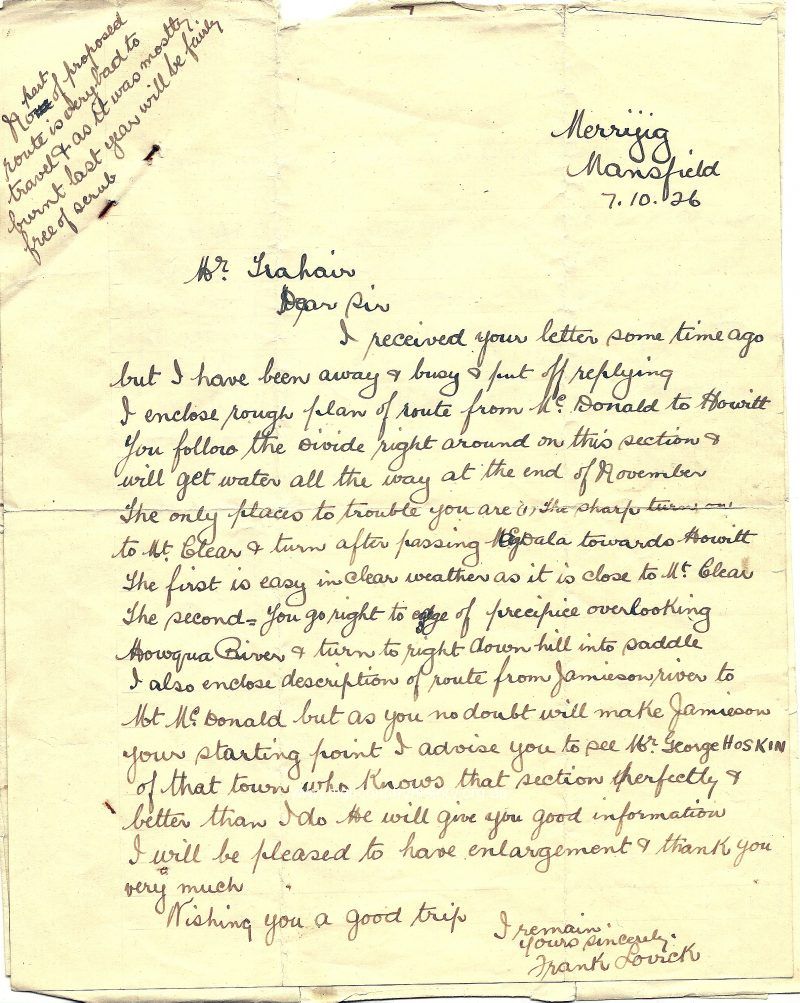 No part of proposed
route is very bad to
travel & as it was mostly
burnt last year will be fairly
free of scrub
Merrijig
Mansfield
7.10.26
Mr. Trahair
Dear Sir
I received your letter some time ago
but I have been away & busy & put off replying
I enclose rough plan of route from Mc. Donald to Howitt
You follow the Divide right around on this section &
will get water all the way at the end of November
The only places to trouble you are (1) The sharp turn on
to Mt. Clear & turn after passing Magdala towards Howitt
The first is easy in clear weather as it is close to Mt Clear
The second = You go right to edge of precipice overlooking
Howqua River & turn to right down hill into saddle
I also enclose description of route from Jamieson river to
Mt Mc. Donald but as you no doubt will make Jamieson
your starting point I advise you to see Mr. George HOSKIN
of that town who knows that section perfectly &
better than I do He will give you good information
I will be pleased to have enlargement & thank you
very much
Wishing you a good trip
I remain
Yours sincerely.
Frank Lovick